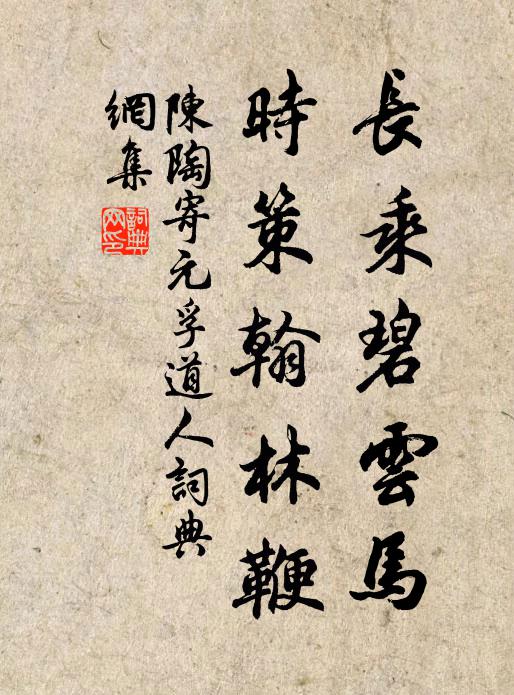 長乘碧雲馬
時策翰林鞭
陳陶寄元孚道人詞典
網集
詞典網印